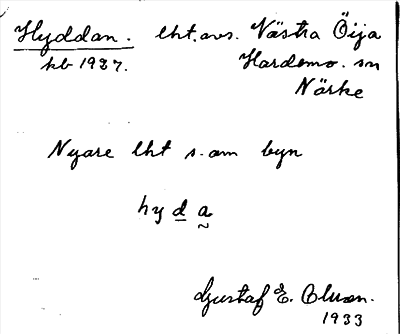 Hyddan. lht. avs. Västra Öija
kb 1927. Hardemo. sn
Närke
Nyare lht s. om byn
hyda
Gustaf E. Olsson.
1933